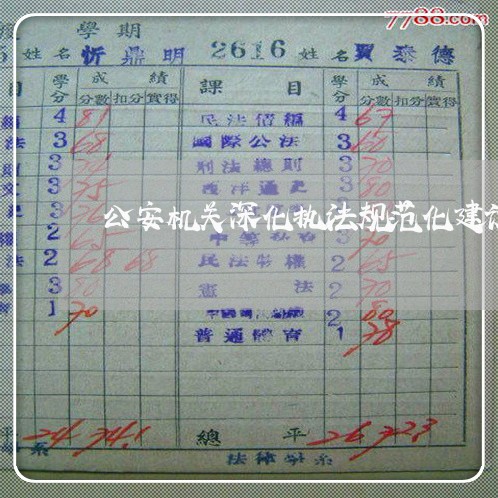 7788.com
學期
5 姓名 忻鼎明 2616 姓名 賈泰德
目 學分 成績 課目 學分 成績
分數 扣分 實得 分數 扣分 實得
4 81 民法債編 4 67
法 3 68 國際公法 3 60
3 刑法總則 3 70
3 75 西洋通史 3 80
公安机关深化执法规范化建设
2 65 3 70
法 2 68 68 民法物權 2 65
3 80 憲法 2 70
1 70 2 80
普通體育 1 78
平 24 74.1 總平 26 72.3
系 法律學系